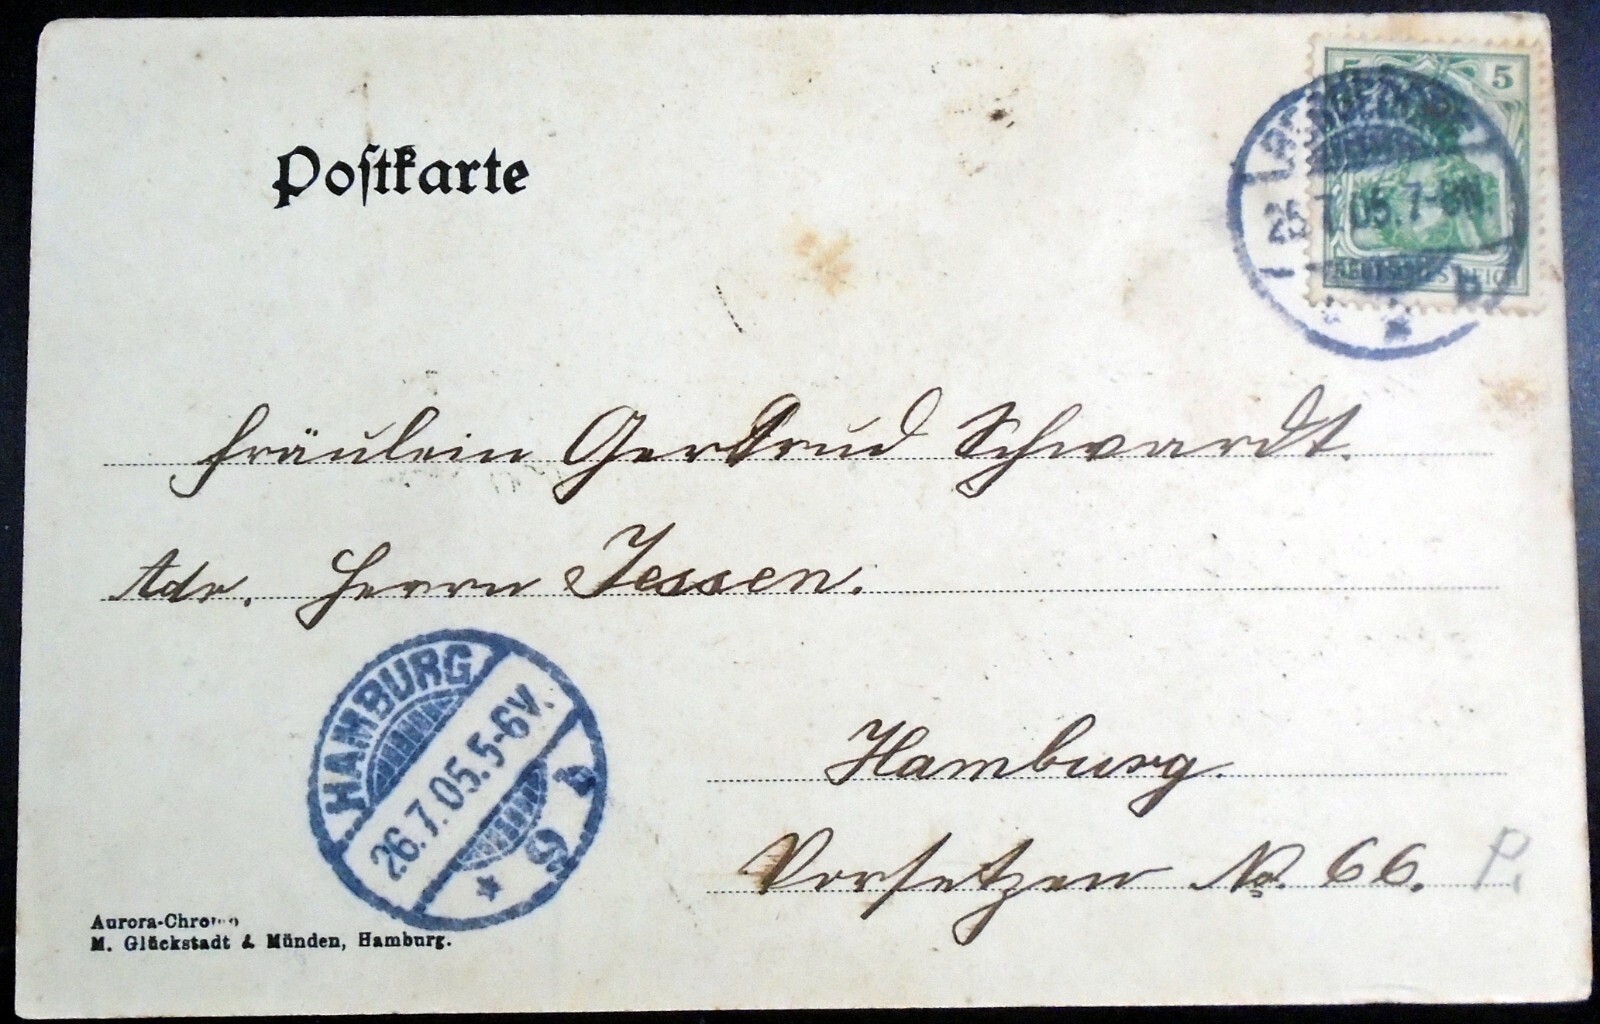 Postkarte
5 5
25.7.05.7-8N.
DEUTSCHES REICH
b
Fräulein Gertrud Schwardt.
Adr. Herrn Jessen.
Hamburg.
Vorsetzen No. 66.
P.
HAMBURG
26.7.05.5-6V.
Aurora-Chromo
M. Glückstadt & Münden, Hamburg.